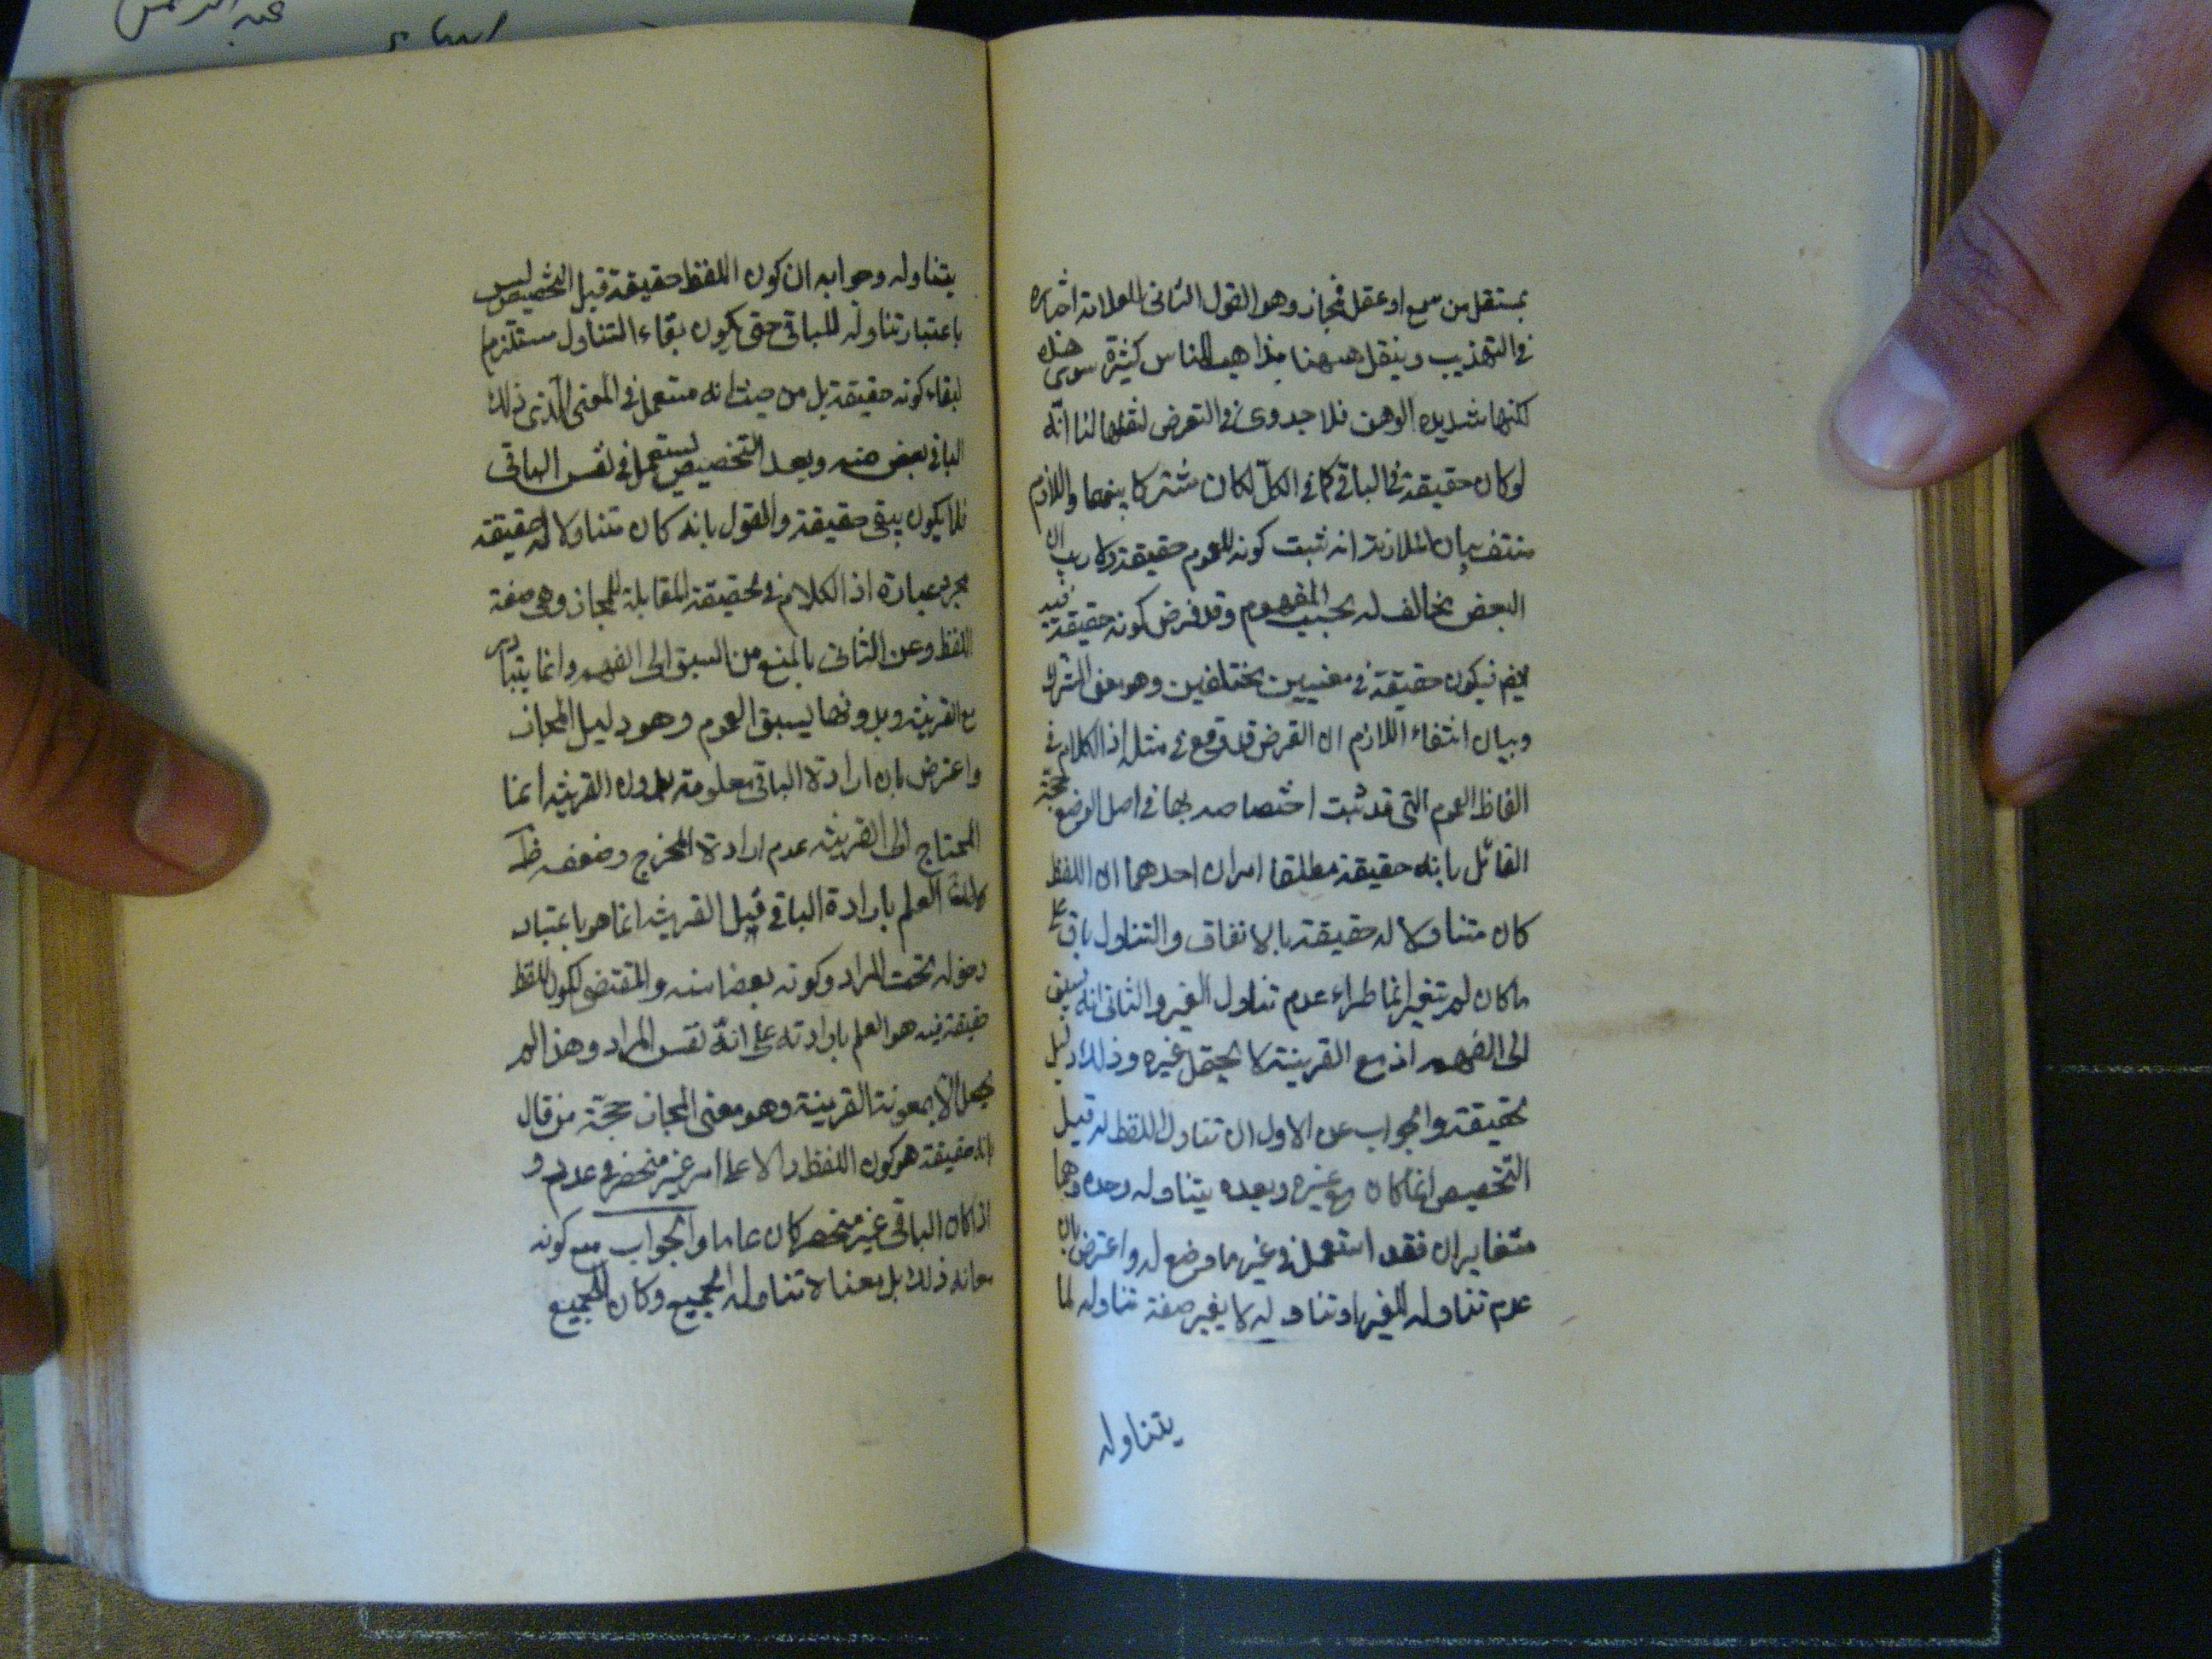 بمستقل من سمع او عقل فمجاز وهو القول الثاني للعلامة اختاره
في التهذيب وينقل ههنا مذاهب للناس كثيرة سوى هذه
لكنها شديدة الوهن فلا جدوى في التعرض لنقلها لنا انّه
لو كان حقيقة في الباقي كما في الكلّ لكان مشتركا بينهما واللازم
منتف بيان الملازمة انه ثبت كونه للعموم حقيقة ولا ريب ان
البعض مخالف له بحسب المفهوم وقد فرض كونه حقيقة فيه
ايضا فيكون حقيقة في معنيين مختلفين وهو معنى المشترك
وبيان انتفاء اللازم ان الفرض قد وقع في مثله اذ الكلام في
الفاظ العموم التي قد ثبت اختصاصه بها في اصل الوضع حجّة
القائل بانه حقيقة مطلقا امران احدهما ان اللفظ
كان متناولا له حقيقة بالاتفاق والتناول باق على
ما كان لم يتغير انما طراء عدم تناول الغير والثاني انه يسبق
الى الفهم اذ مع القرينة لا يحتمل غيره وذلك دليل
الحقيقة والجواب عن الاول ان تناول اللفظ له قبل
التخصيص انما كان مع غيره وبعده يتناوله وحده وهما
متغايران فقد استعمل في غير ما وضع له واعترض بان
عدم تناوله للغير او تناوله لا يغير صفة تناوله لما
يتناوله
يتناوله وجوابه ان كون اللفظ حقيقة قبل التخصيص ليس
باعتبار تناوله للباقي حتى يكون بقاء التناول مستلزما
لبقاء كونه حقيقة بل من حيث انه مستعمل في المعنى الذي ذلك
الباقي بعض منه وبعد التخصيص يستعمل في نفس الباقي
فلا يكون يبقى حقيقة والقول بانه كان متناولا له حقيقة
مجرد عبارة اذ الكلام في الحقيقة المقابلة للمجاز وهي صفة
اللفظ وعن الثاني بالمنع من السبق الى الفهم وانما يتبادر
مع القرينة وبدونها يسبق العموم وهو دليل المجاز
واعترض بان ارادة الباقي معلومة بدون القرينة انما
المحتاج الى القرينة عدم ارادة المخرج وضعفه ظ
العلم بارادة الباقي قبل القرينة انما هو باعتبار
دخوله تحت المراد وكونه بعضا منه والمقتضى لكون اللفظ
حقيقة فيه هو العلم بارادته على انّه نفس المراد وهذا لم
يحصل الّا بمعونة القرينة وهو معنى المجاز حجّة من قال
بانه حقيقة هو كون اللفظ دالا على امر غير منحصر في عدد و
اذا كان الباقي غير منحصر كان عاما والجواب منع كون
معناه ذلك بل معناه تناوله للجميع وكان للجميع